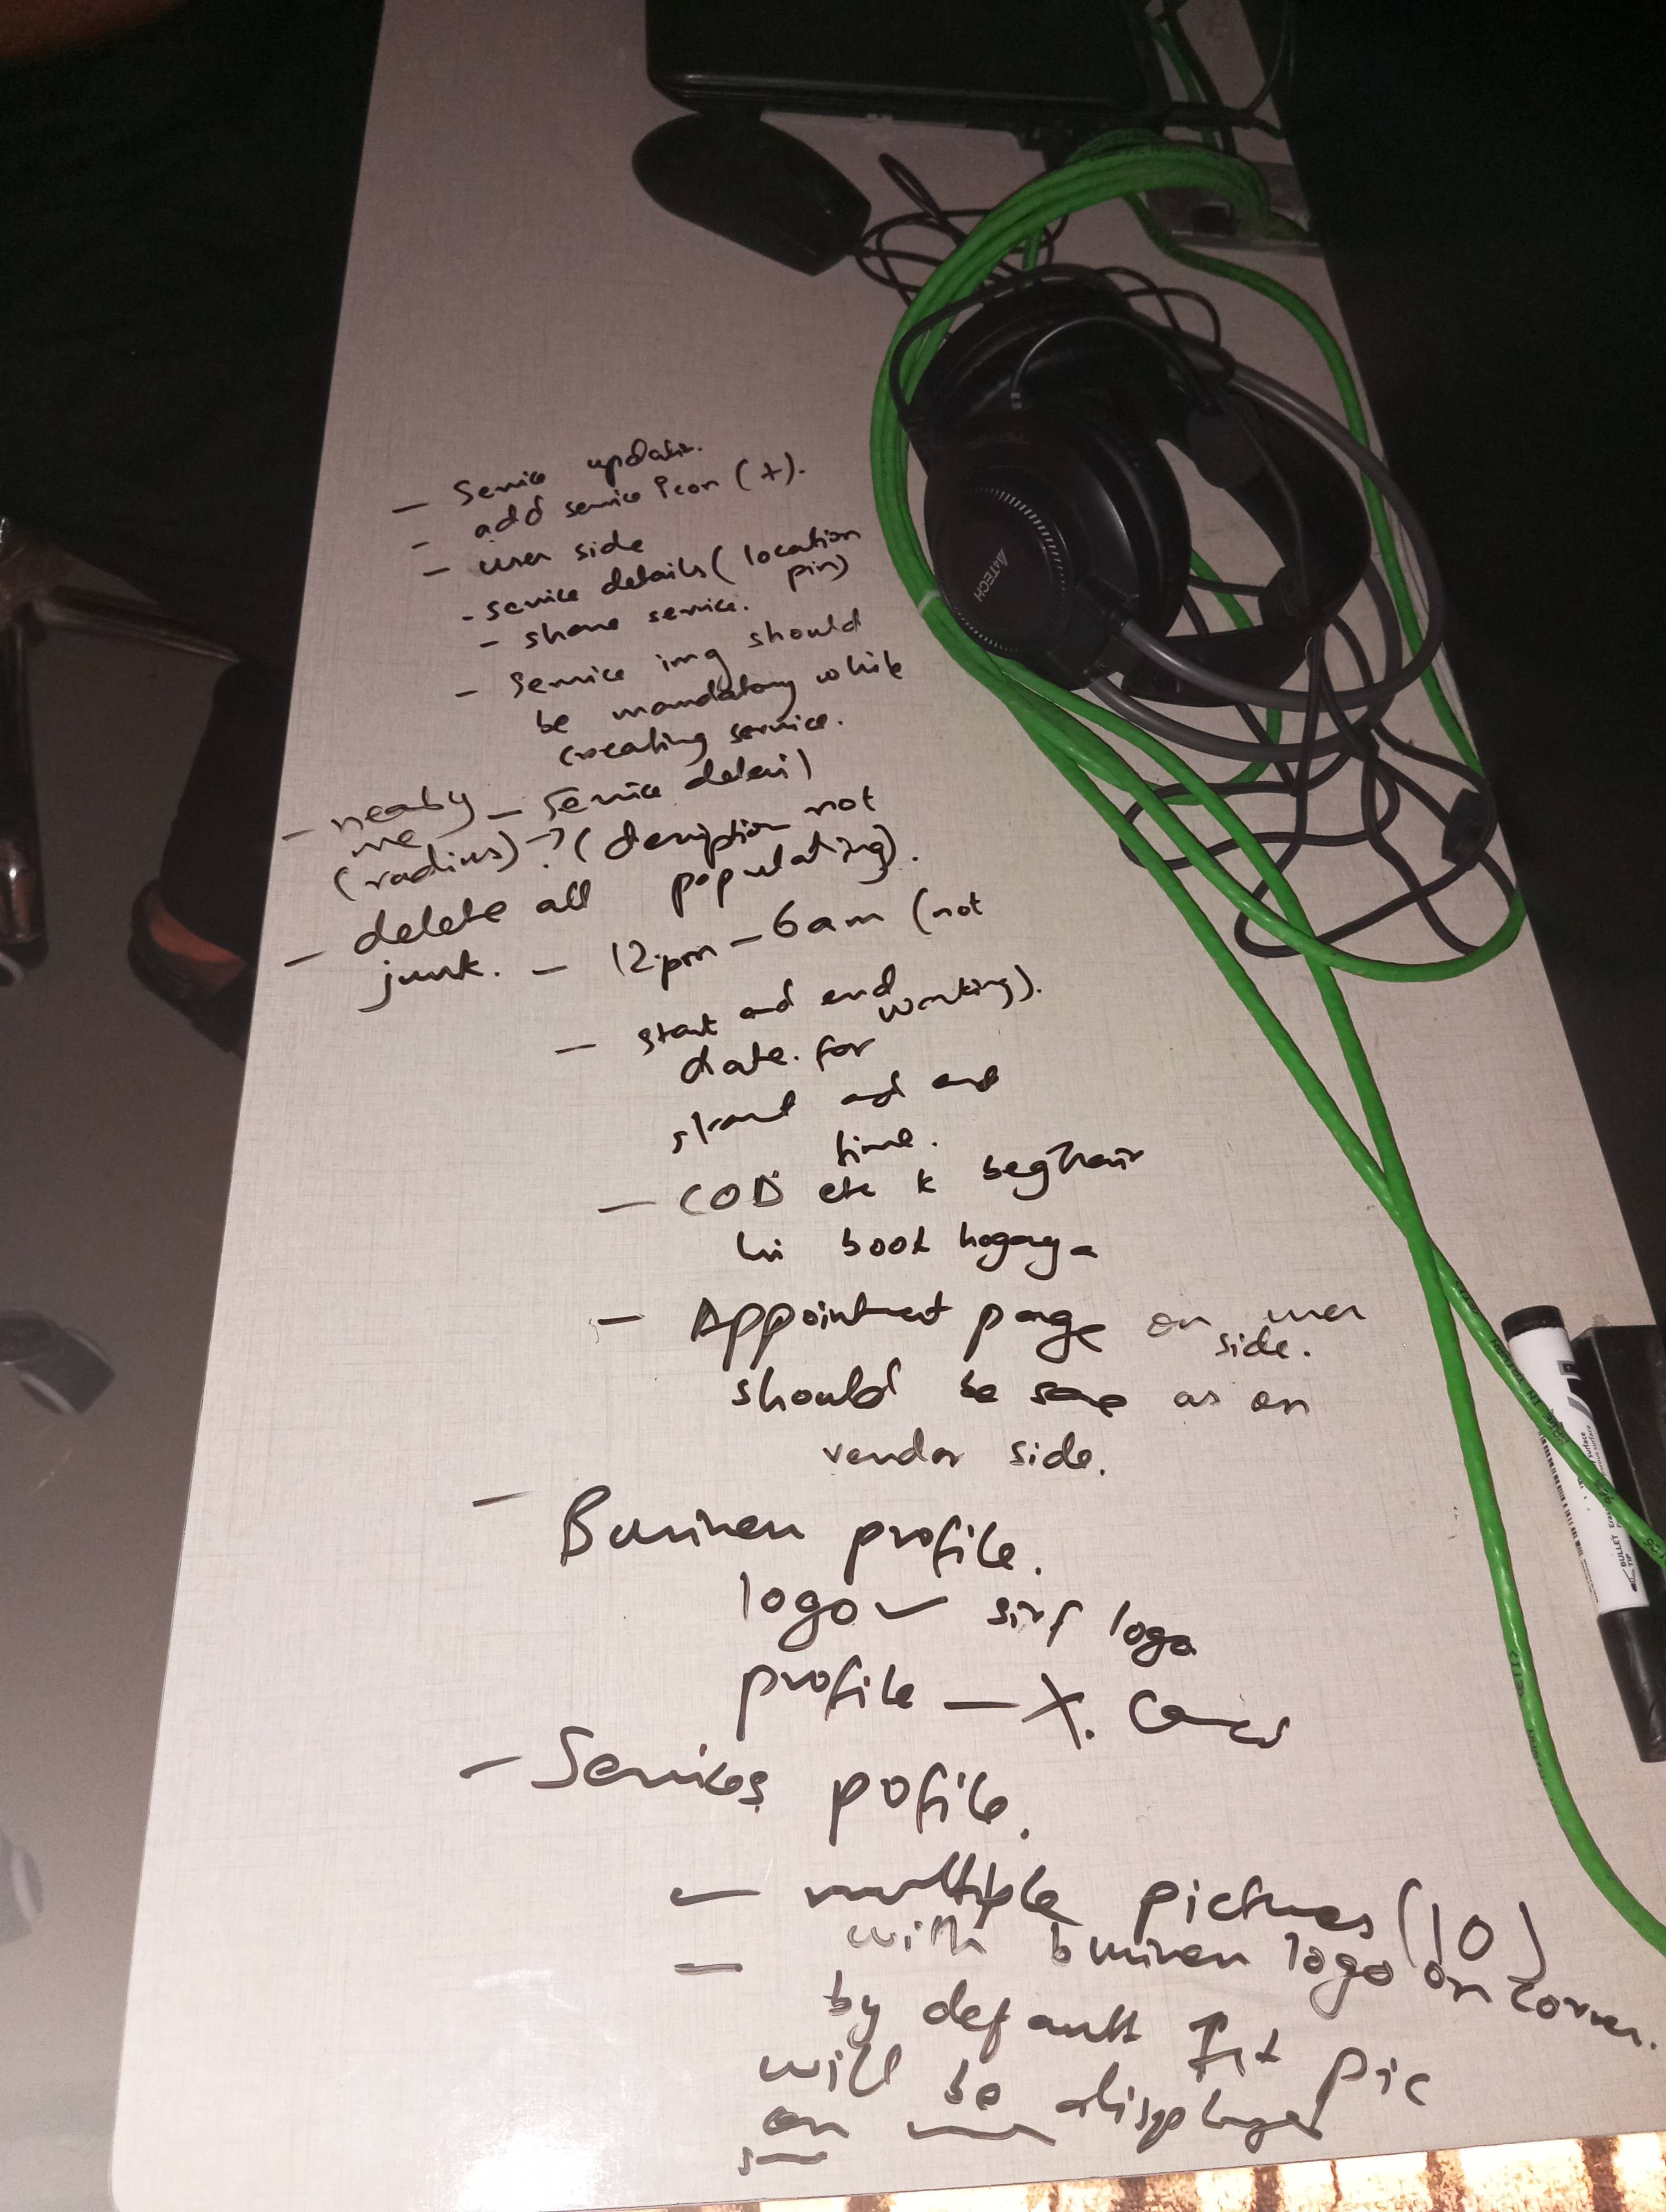 - Service updatin.
- add service icon (+).
- user side
- service details (location pin)
- share service.
- Service img should
be mandatory while
creating service.
- nearby me (radius) ?
- Service detail
→ (deription not
populating).
- delete all
junk.
- 12pm - 6am (not
working).
- start and end
date. for
start and end
time.
- COD etc k beghair
hi book hogaya
- Appointment page on user
side.
should be same as on
vendor side.
- Business profile.
logo ✓ sirf logo
profile - X.
- Services pofile.
- multiple pictures (10)
- with business logo on corner.
by default first pic
will be displayed
on
A4TECH
BULLET TIP